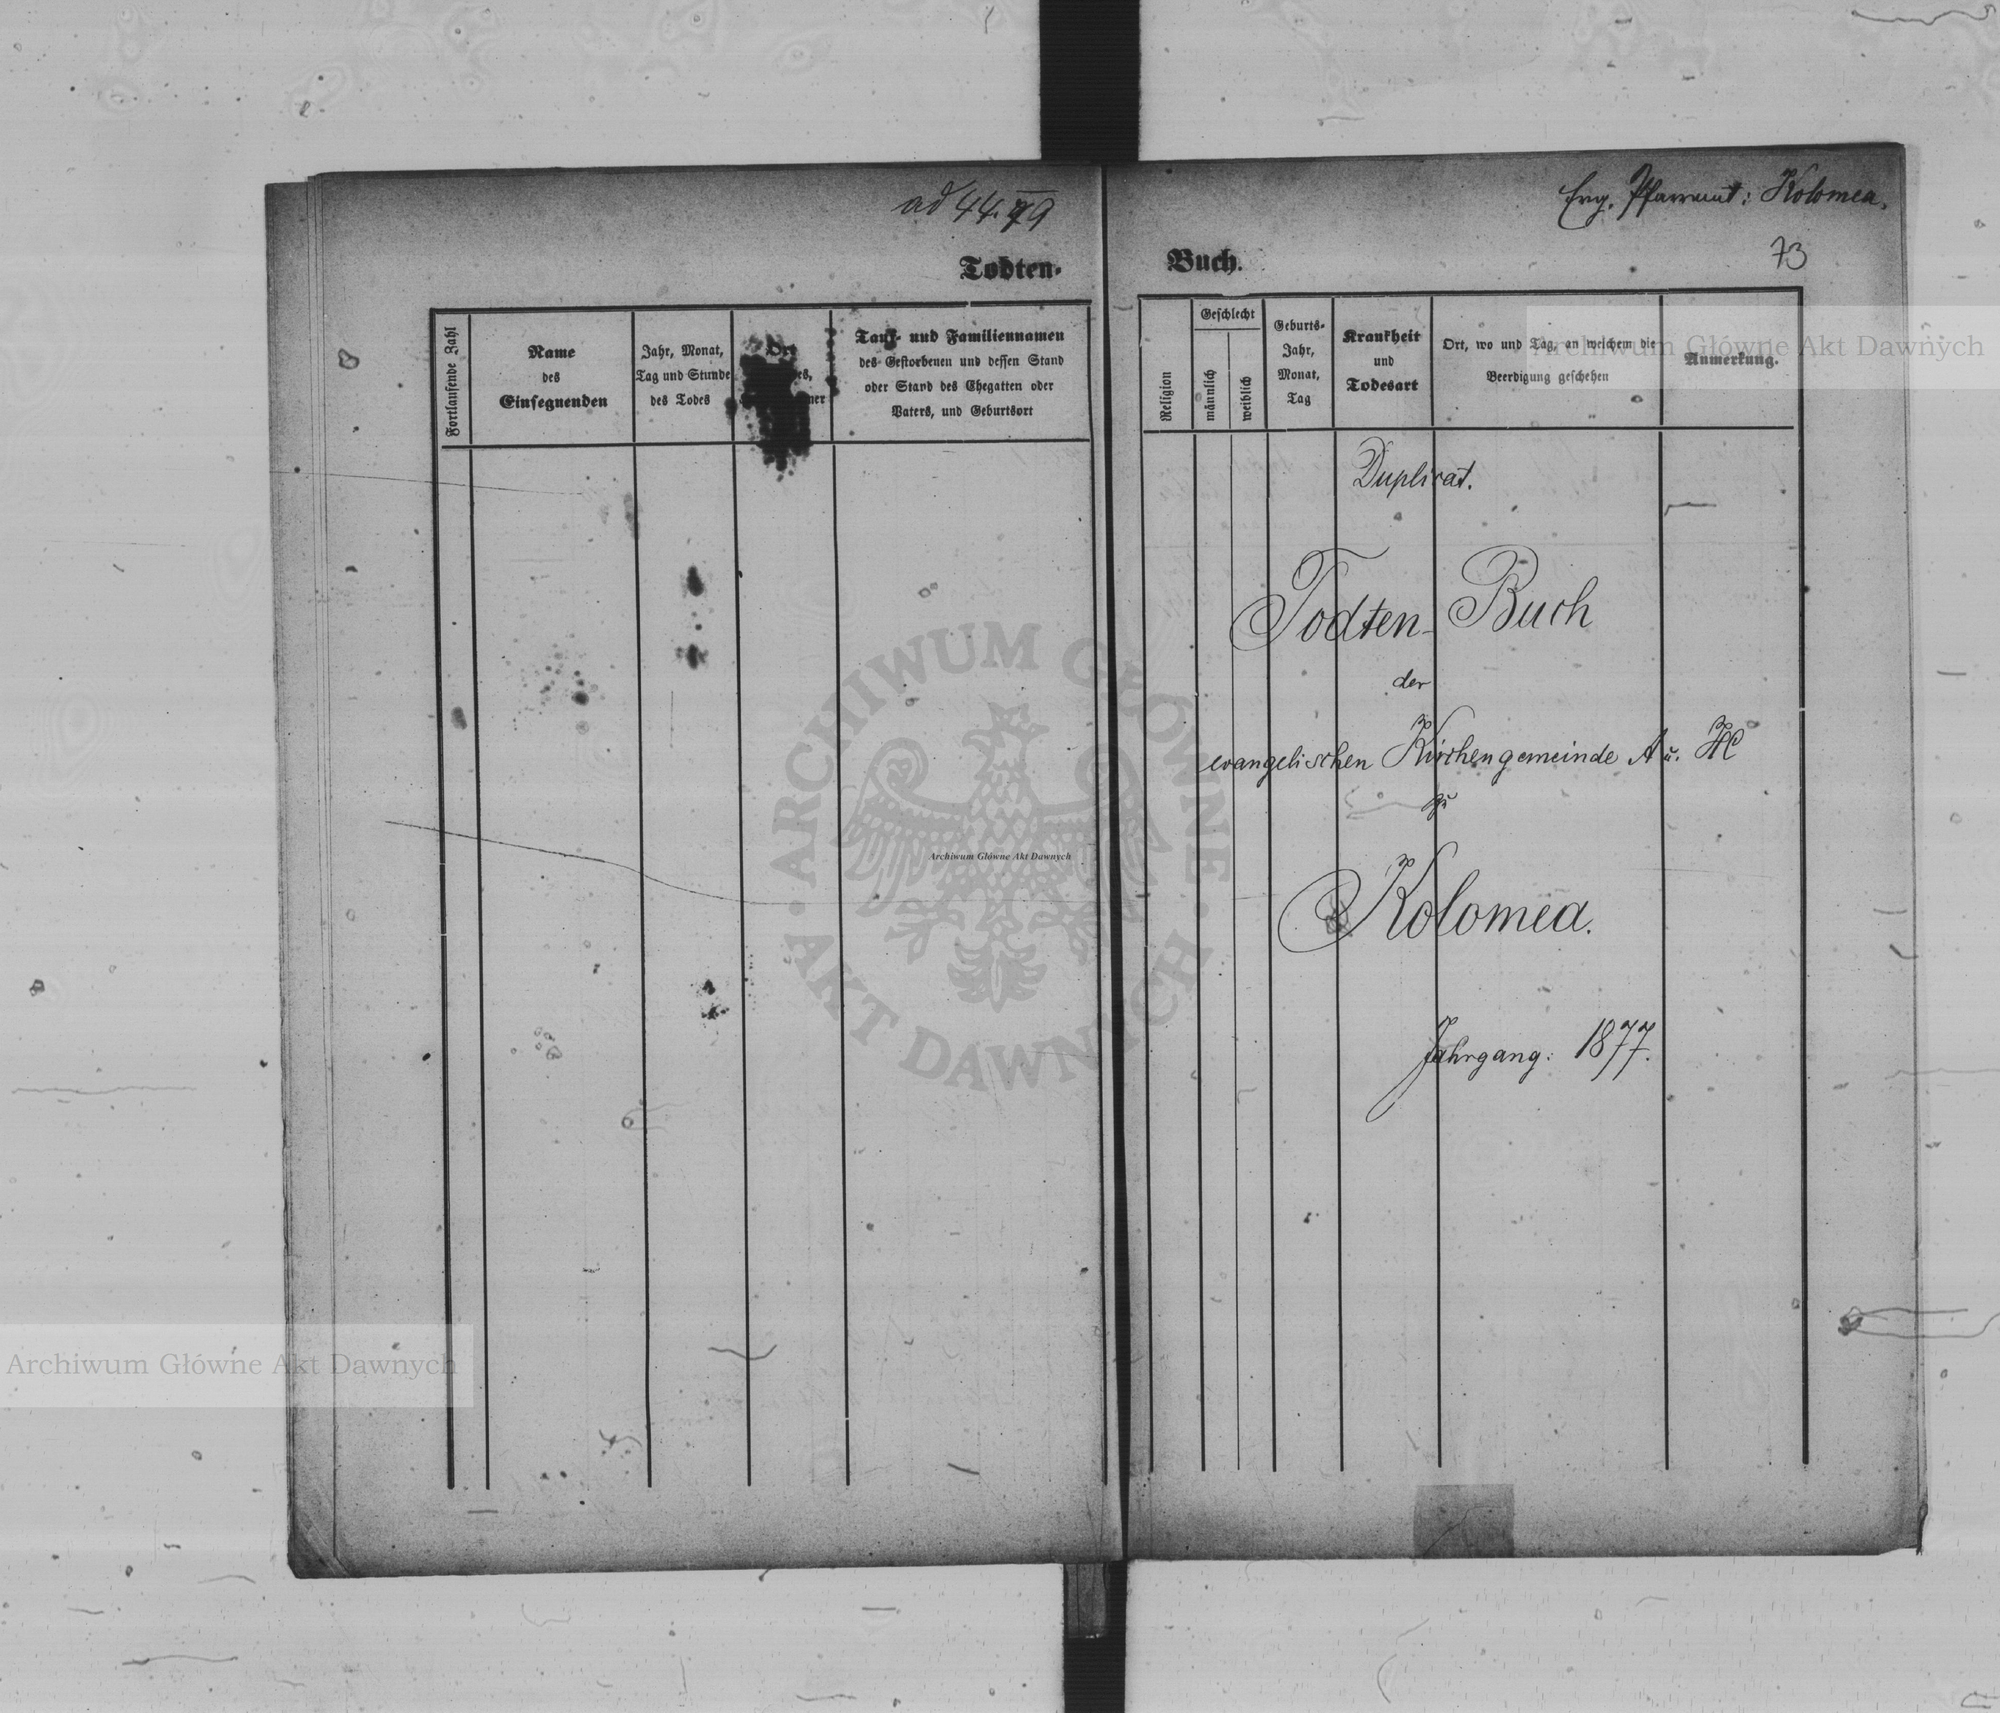 ad 44. 79
Evg. Pfarramt: Kolomea.
73
Todten-
Buch.
Fortlaufende Zahl
Name
des
Einsegnenden
Jahr, Monat,
Tag und Stunde
des Todes
Ort
Tauf- und Familiennamen
des Gestorbenen und dessen Stand
oder Stand des Ehegatten oder
Vaters, und Geburtsort
Religion
Geschlecht
männlich
weiblich
Geburts-
Jahr,
Monat,
Tag
Krankheit
und
Todesart
Ort, wo und Tag, an welchem die
Beerdigung geschehen
Anmerkung.
Duplicat.
Todten-Buch
der
evangelischen Kirchengemeinde A u. HC
zu
Kolomea.
Jahrgang: 1877.
Archiwum Główne Akt Dawnych
ARCHIWUM GŁÓWNE
Archiwum Główne Akt Dawnych
AKT DAWNYCH
Archiwum Główne Akt Dawnych